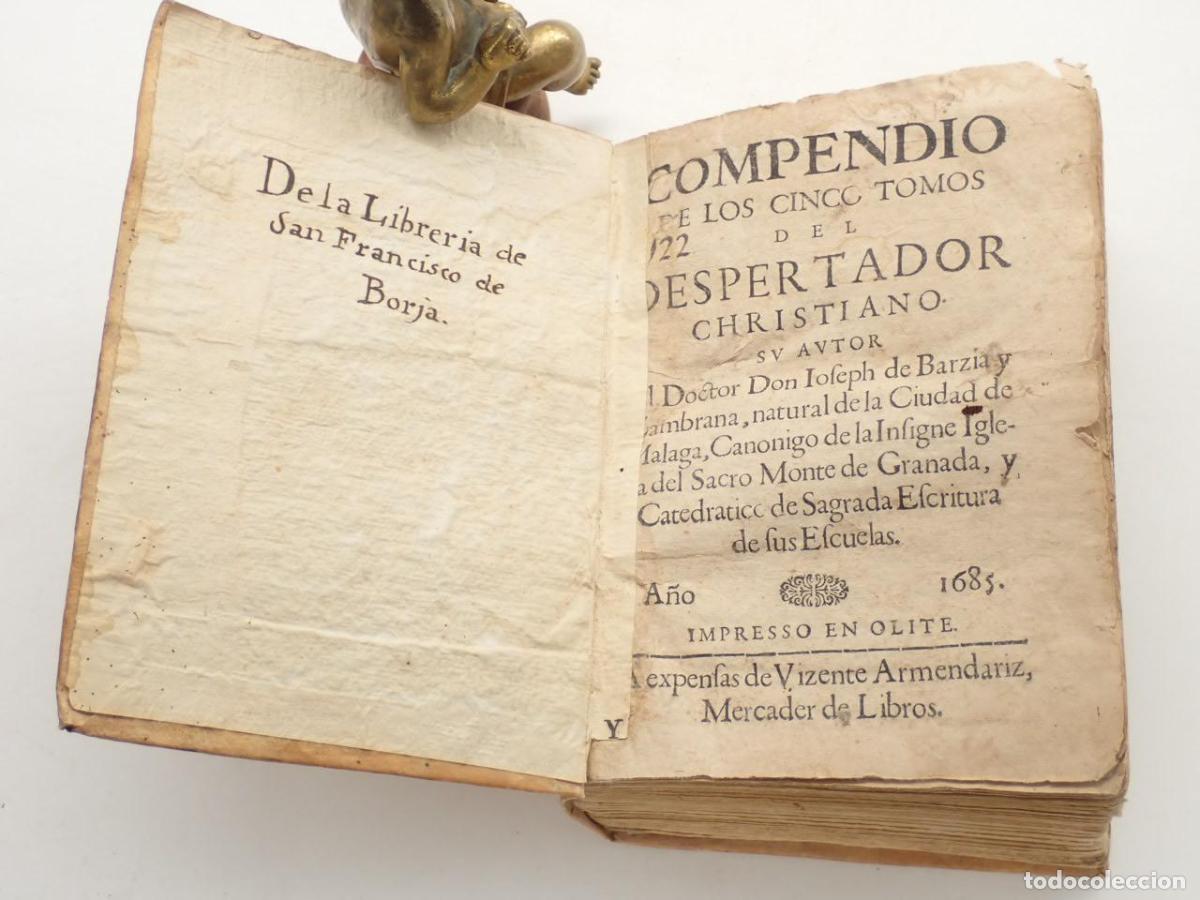 De la Libreria de
San Francisco de
Borja.
COMPENDIO
DE LOS CINCO TOMOS
DEL
922
DESPERTADOR
CHRISTIANO.
SV AVTOR
l Doctor Don Ioſeph de Barzia y
ambrana, natural de la Ciudad de
Malaga, Canonigo de la Inſigne Igle-
a del Sacro Monte de Granada, y
Catedratico de Sagrada Eſcritura
de ſus Eſcuelas.
Año 1685.
IMPRESSO EN OLITE.
A expenſas de Vizente Armendariz,
Mercader de Libros.
Y
todocoleccion